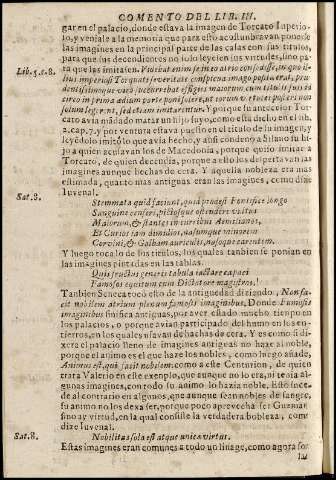 COMENTO DEL LIB. III.
gar en el palacio, donde estava la imagen de Torcato Imperio-
so, y veniale a la memoria que para esto acostumbravan ponerse
las imagines en la principal parte de las casas con sus titulos,
para que sus decendientes no solo leyessen sus virtudes, sino pa-
Lib. 5. c. 8.
ra que las imitassen. Videbat enim se in eo atrio consedisse, in quo il-
lius imperiosi Torquati severitate conspicua imago posita erat, pru-
dentissimoque viro occurrebat effigies maiorum cum titulis suis id-
circo in prima aedium parte poni solere, ut eorum virtutes posteri non
solum legerent, sed etiam imitarentur. Y porque su antecessor Tor-
cato avia mãdado matar un hijo suyo, como esta dicho en el lib.
2. cap. 7. y por ventura estava puesto en el titulo de su imagen, y
leyẽdolo imitò lo que avia hecho, y assi condenò a Silano su hi-
jo a quien acusavan los de Macedonia, porque quiso imitar a
Torcato, de quien decendia, porque a esto los despertavan las
imagines aunque hechas de cera. Y aquella nobleza era mas
estimada, quanto mas antiguas eran las imagines, como dize
Iuvenal.
Sat. 8.
Stemmata quid faciunt, quid prodest Pontice longo
Sanguine censeri, pictosque ostendere vultus
Maiorum, & stantes in curribus Aemilianos,
Et Curios iam dimidios, nasumque minorem
Corvini, & Galbam auriculis, nasoque carentem.
Y luego toca lo de los titulos, los quales tambien se ponian en
las imagines pintadas en las tablas.
Quis fructus generis tabula iactare capaci
Famosos equitum cum Dictatore magistros.
Tambien Seneca tocò esto de la antiguedad diziendo, Non fa-
cit nobilem atrium plenum famosis imaginibus. Donde Fumosis
imaginibus sinifica antiguas, por aver estado mucho tiempo en
los palacios, o porque avian participado del humo en los en-
tierros, en los quales yvan delante hachas de cera. Y es como si di-
xera el palacio lleno de imagines antiguas no haze al noble,
porque el animo es el que haze los nobles, como luego añade,
Animus est, qui facit nobilem: como a este Centurion, de quien
trata Valerio en este exemplo, que aunque no era, ni tenia al-
gunas imagines, con todo su animo lo hazia noble. Esto suce-
de al contrario en algunos, que aunque sean nobles de sangre,
su animo no los dexa ser, porque poco aprovecha ser Guzman
sino ay virtud, en la qual consiste la verdadera nobleza, como
dize Iuvenal.
Sat. 8.
Nobilitas sola est atque unica virtus.
Estas imagines eran comunes a todo un linage, como agora son